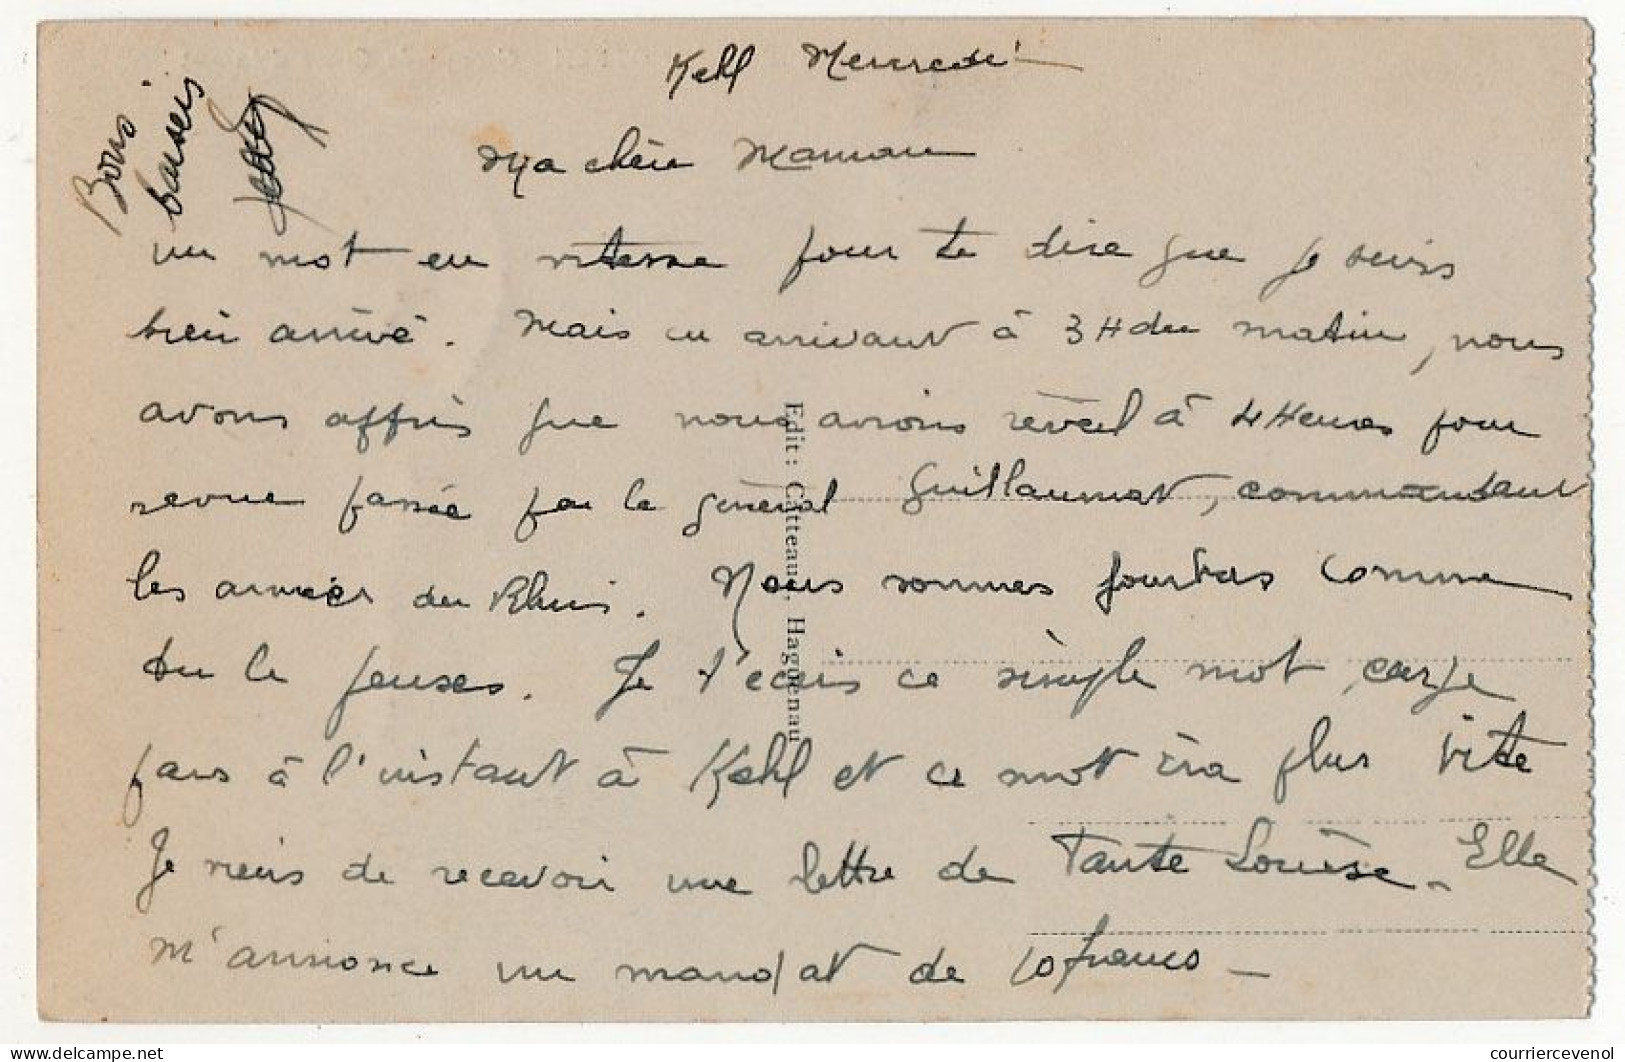 Kehl Mercredi
Ma chère Maman
un mot en vitesse pour te dire que je suis
bien arrivé. Mais en arrivant à 3H du matin, nous
avons appris que nous avions réveil à 4 Heures pour
revue passée par le général Guillaumat, commandant
les armées du Rhin. Nous sommes fourbus comme
tu le penses. Je t'écris ce simple mot, car je
pars à l'instant à Kehl et ce mot ira plus vite
Je viens de recevoir une lettre de Tante Louise. Elle
m'annonce un mandat de 10 francs -
Bons
baisers
Edit: Catteau, Haguenau
courriercevenol
www.delcampe.net